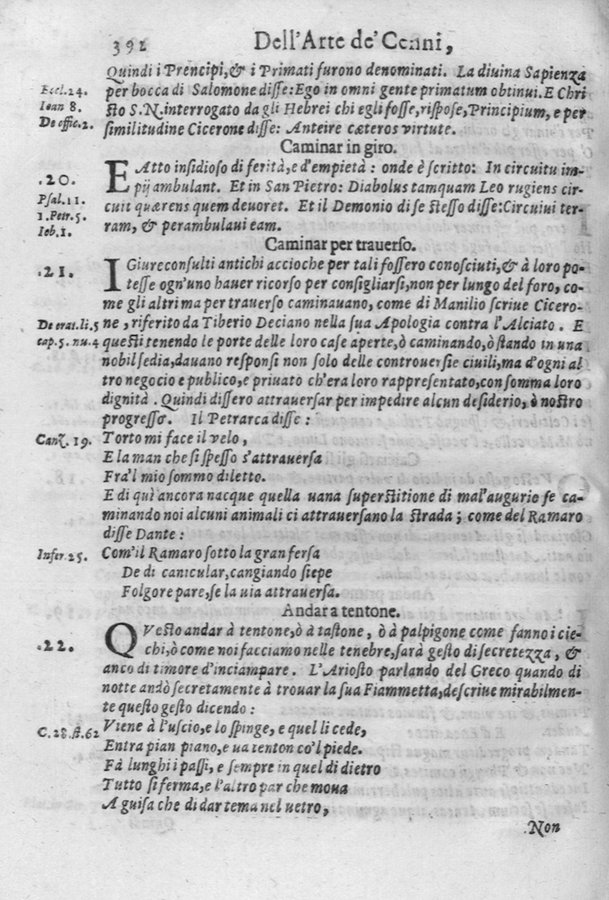 392 Dell'Arte de' Cenni,
Quindi i Prencipi, & i Primati furono denominati. La diuina Sapienza
Eccl. 24. per bocca di Salomone disse: Ego in omni gente primatum obtinui. E Chri
Ioan 8. sto S. N. interrogato da gli Hebrei chi egli fosse, rispose, Principium, e per
De offic. 2. similitudine Cicerone disse: Anteire cæteros virtute.
Caminar in giro.
.20. E Atto insidioso di ferità, e d'empietà: onde è scritto: In circuitu im-
Psal. 11. pij ambulant. Et in San Pietro: Diabolus tamquam Leo rugiens cir-
1. Petr. 5. cuit quærens quem deuoret. Et il Demonio di se stesso disse: Circuiui ter-
Iob. 1. ram, & perambulaui eam.
Caminar per trauerso.
.21. I Giureconsulti antichi accioche per tali fossero conosciuti, & à loro po-
tesse ogn'uno hauer ricorso per consigliarsi, non per lungo del foro, co-
me gli altri ma per trauerso caminauano, come di Manilio scriue Cicero-
De orat. li. 5 ne, riferito da Tiberio Deciano nella sua Apologia contra l'Alciato. E
cap. 5. nu. 4 questi tenendo le porte delle loro case aperte, ò caminando, ò stando in una
nobil sedia, dauano responsi non solo delle controuersie ciuili, ma d'ogni al
tro negocio e publico, e priuato ch'era loro rappresentato, con somma loro
dignità. Quindi dissero attrauersar per impedire alcun desiderio, ò nostro
progresso. Il Petrarca disse:
Canz. 19. Torto mi face il velo,
E la man che si spesso s'attrauersa
Fra'l mio sommo diletto.
E di quì ancora nacque quella uana superstitione di mal'augurio se ca-
minando noi alcuni animali ci attrauersano la strada; come del Ramaro
disse Dante:
Infer. 25. Com'il Ramaro sotto la gran fersa
De di canicular, cangiando siepe
Folgore pare, se la uia attrauersa.
Andar a tentone.
.22. QVesto andar à tentone, ò à tastone, ò à palpigone come fanno i cie-
chi, ò come noi facciamo nelle tenebre, sarà gesto di secretezza, &
anco di timore d'inciampare. L'Ariosto parlando del Greco quando di
notte andò secretamente à trouar la sua Fiammetta, descriue mirabilmen-
te questo gesto dicendo:
C. 28. st. 62 Viene à l'uscio, e lo spinge, e quel li cede,
Entra pian piano, e ua tenton co'l piede.
Fà lunghi i passi, e sempre in quel di dietro
Tutto si ferma, e l'altro par che moua
A guisa che di dar tema nel uetro,
Non